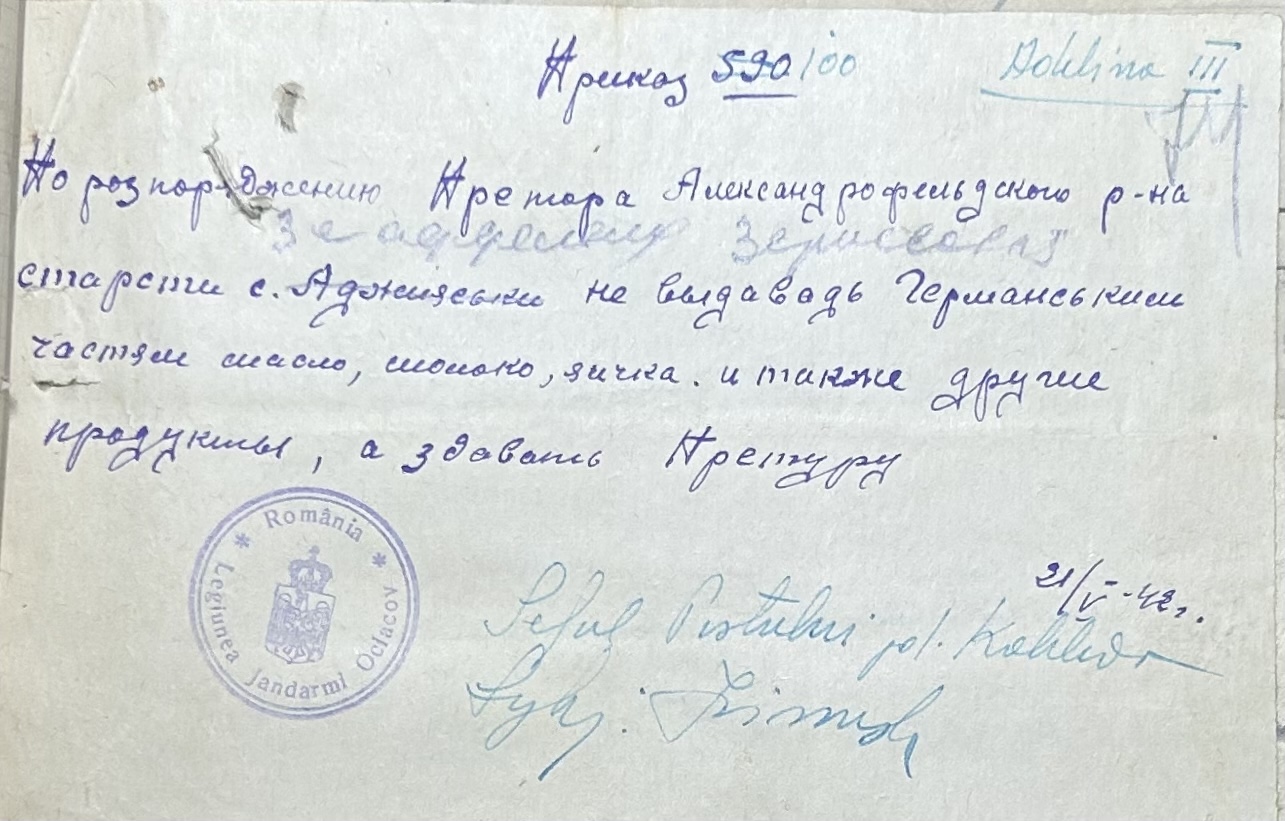 Приказ 590/00
III
По розпоряджению Претора Александрофельдского р-на
старсти с. Аджияськи не выдавадь Германським
частям масло, молоко, яичка. и также другие
продукты, а здавать Претуру
România
Legiunea Jandarmi Ociacov
21/V-42г.
Seful Postului